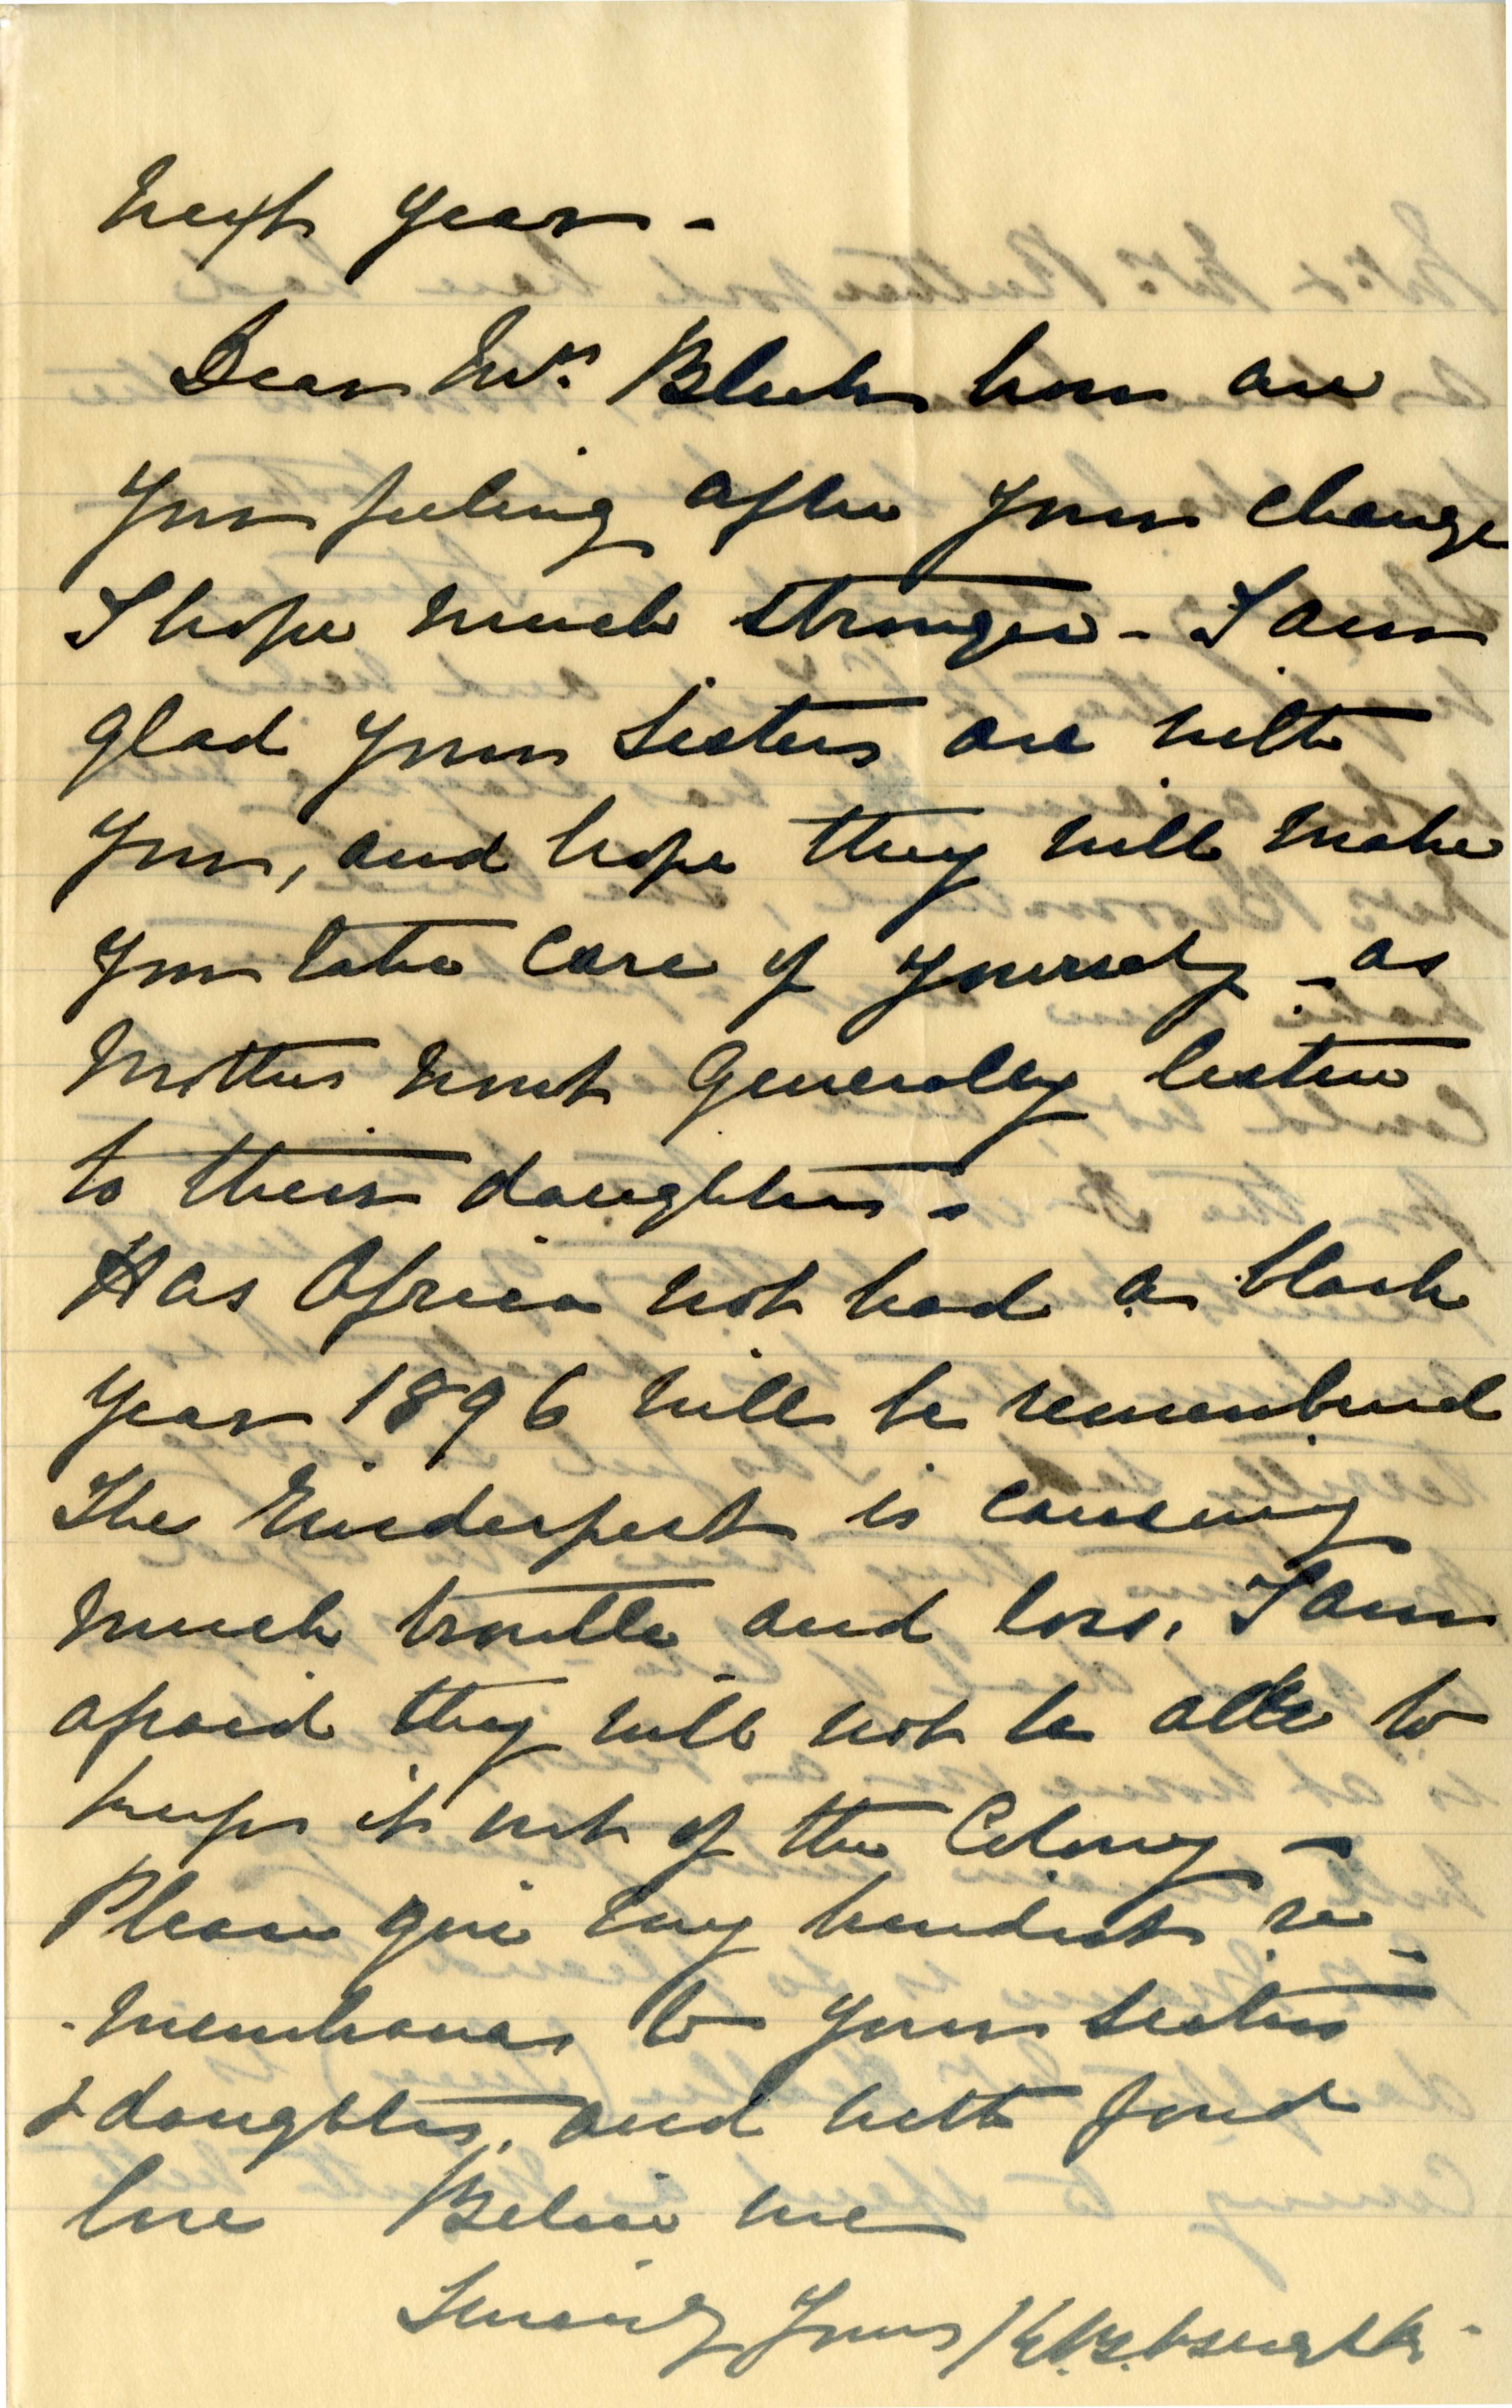 next year -
Dear Mrs. Bleek how are
you feeling after your change
I hope much stronger - I am
glad your Sisters are with
you, and hope they will make
you take care of yourself - as
Mothers wont generally listen
to their daughters -
Has Africa not had a black
year 1896 will be remembered
The Rinderpest is causing
much trouble and loss. I am
afraid they will not be able to
keep it out of the Colony -
Please give my kindest re-
-membrances to your Sisters
& daughters, and with fond
love Believe me
Sincerely Yours